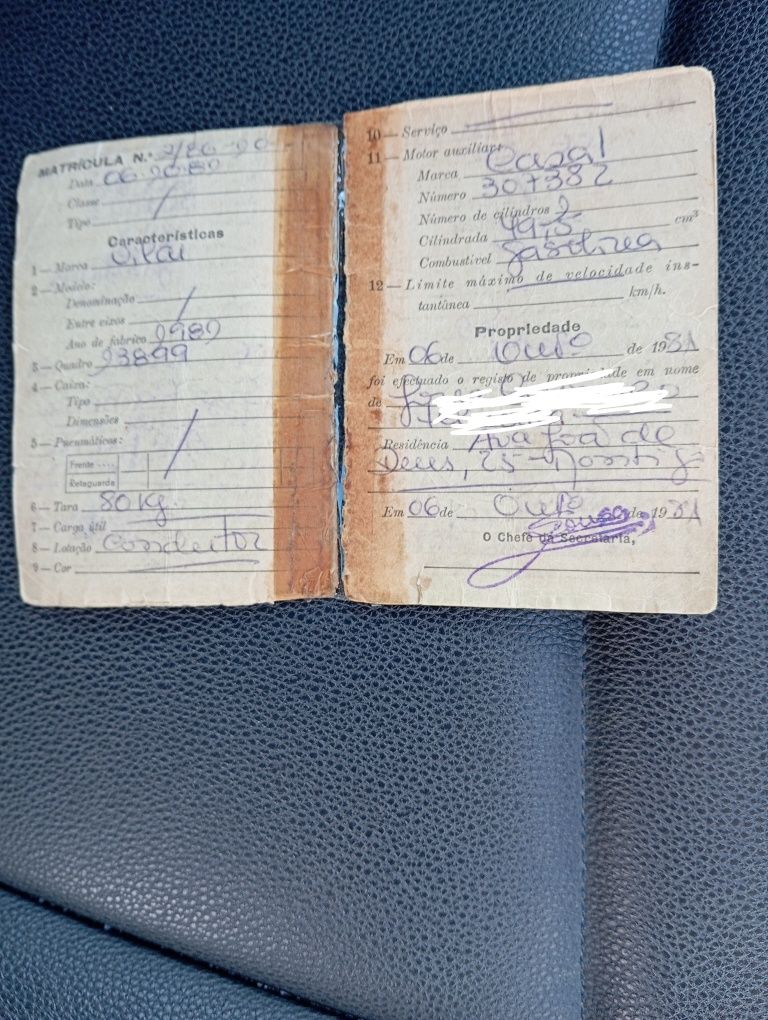 MATRÍCULA N.º
Data 06
Classe
Tipo
Características
1 — Marca Vilar
2 — Modelo:
Denominação
Entre eixos
Ano de fabrico
3 — Quadro 23899
4 — Caixa:
Tipo
Dimensões
5 — Pneumáticos:
Frente
Retaguarda
6 — Tara 80 kg
7 — Carga útil
8 — Lotação condutor
9 — Cor
10 — Serviço
11 — Motor auxiliar:
Marca Casal
Número 307382
Número de cilindros
Cilindrada 49,5 cm³
Combustível gasolina
12 — Limite máximo de velocidade ins-
tantânea km/h.
Propriedade
Em 06 de Outº de 1981
foi efectuado o registo de propriedade em nome
de
Residência
Deus, 25
Em 06 de Outº de 1981
O Chefe da Secretaria,